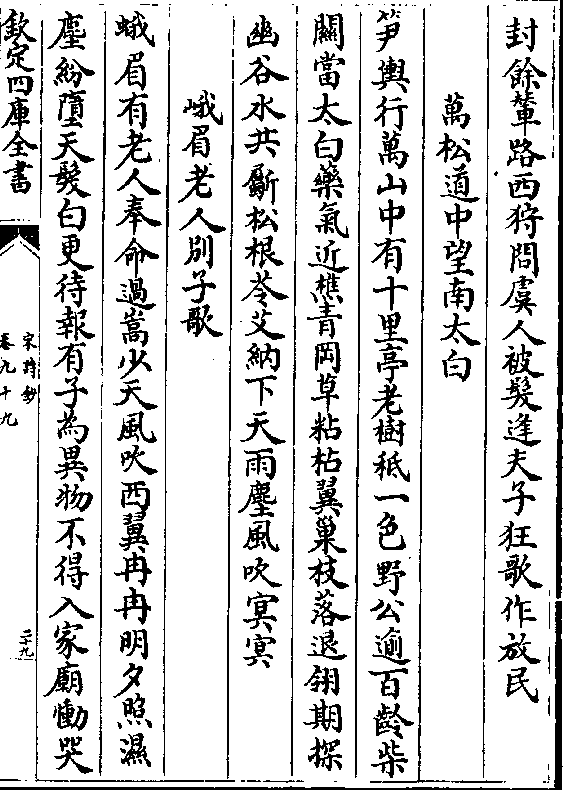 封餘輦路西狩問虞人被髮逢夫子狂歌作放民
萬松道中望南太白
笋輿行萬山中有十里亭老樹秪一色野公逾百齡柴
關當太白藥氣近樵青岡草粘枯翼巢枝落退翎期探
幽谷水共斸松根苓艾納下天雨塵風吹寞寞
峨眉老人别子歌
蛾眉有老人奉命過嵩少天風吹西翼冉冉明夕照濕
塵紛墮天髮白更待報有子為異物不得入家廟慟哭
欽定四庫全書
宋詩鈔
卷九十九
二十九